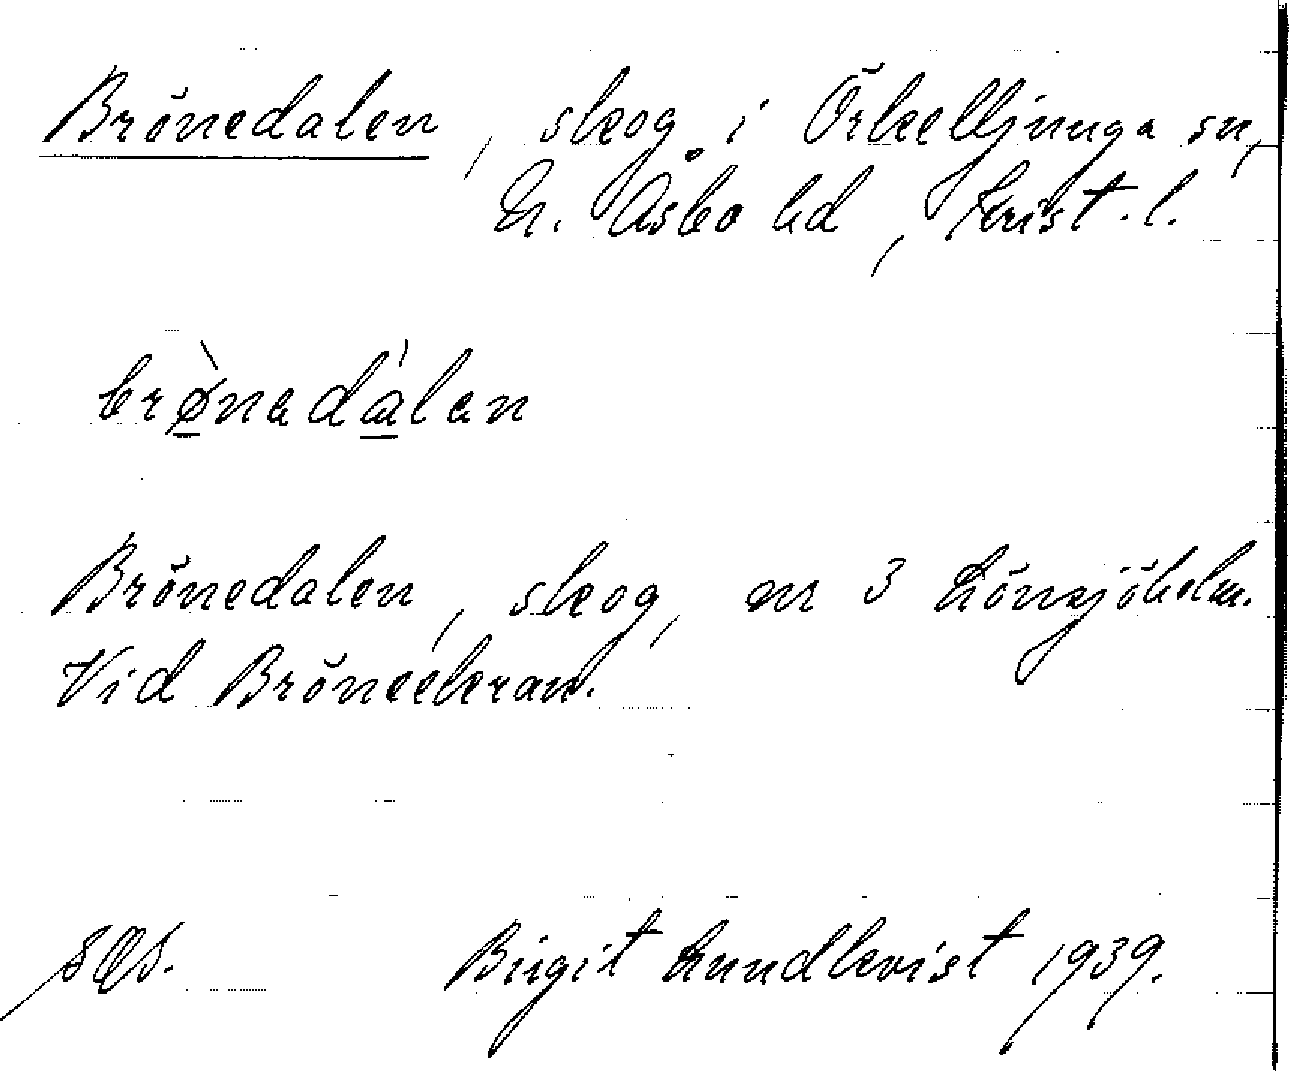 Brönedalen, skog i Örkelljunga sn,
N. Åsbo hd, Krist. l.
brø̀nadálan
Brönedalen, skog, nr 3 Lönsjöholm.
Vid Bröneekran.
SOS. Birgit Lundkvist 1939.